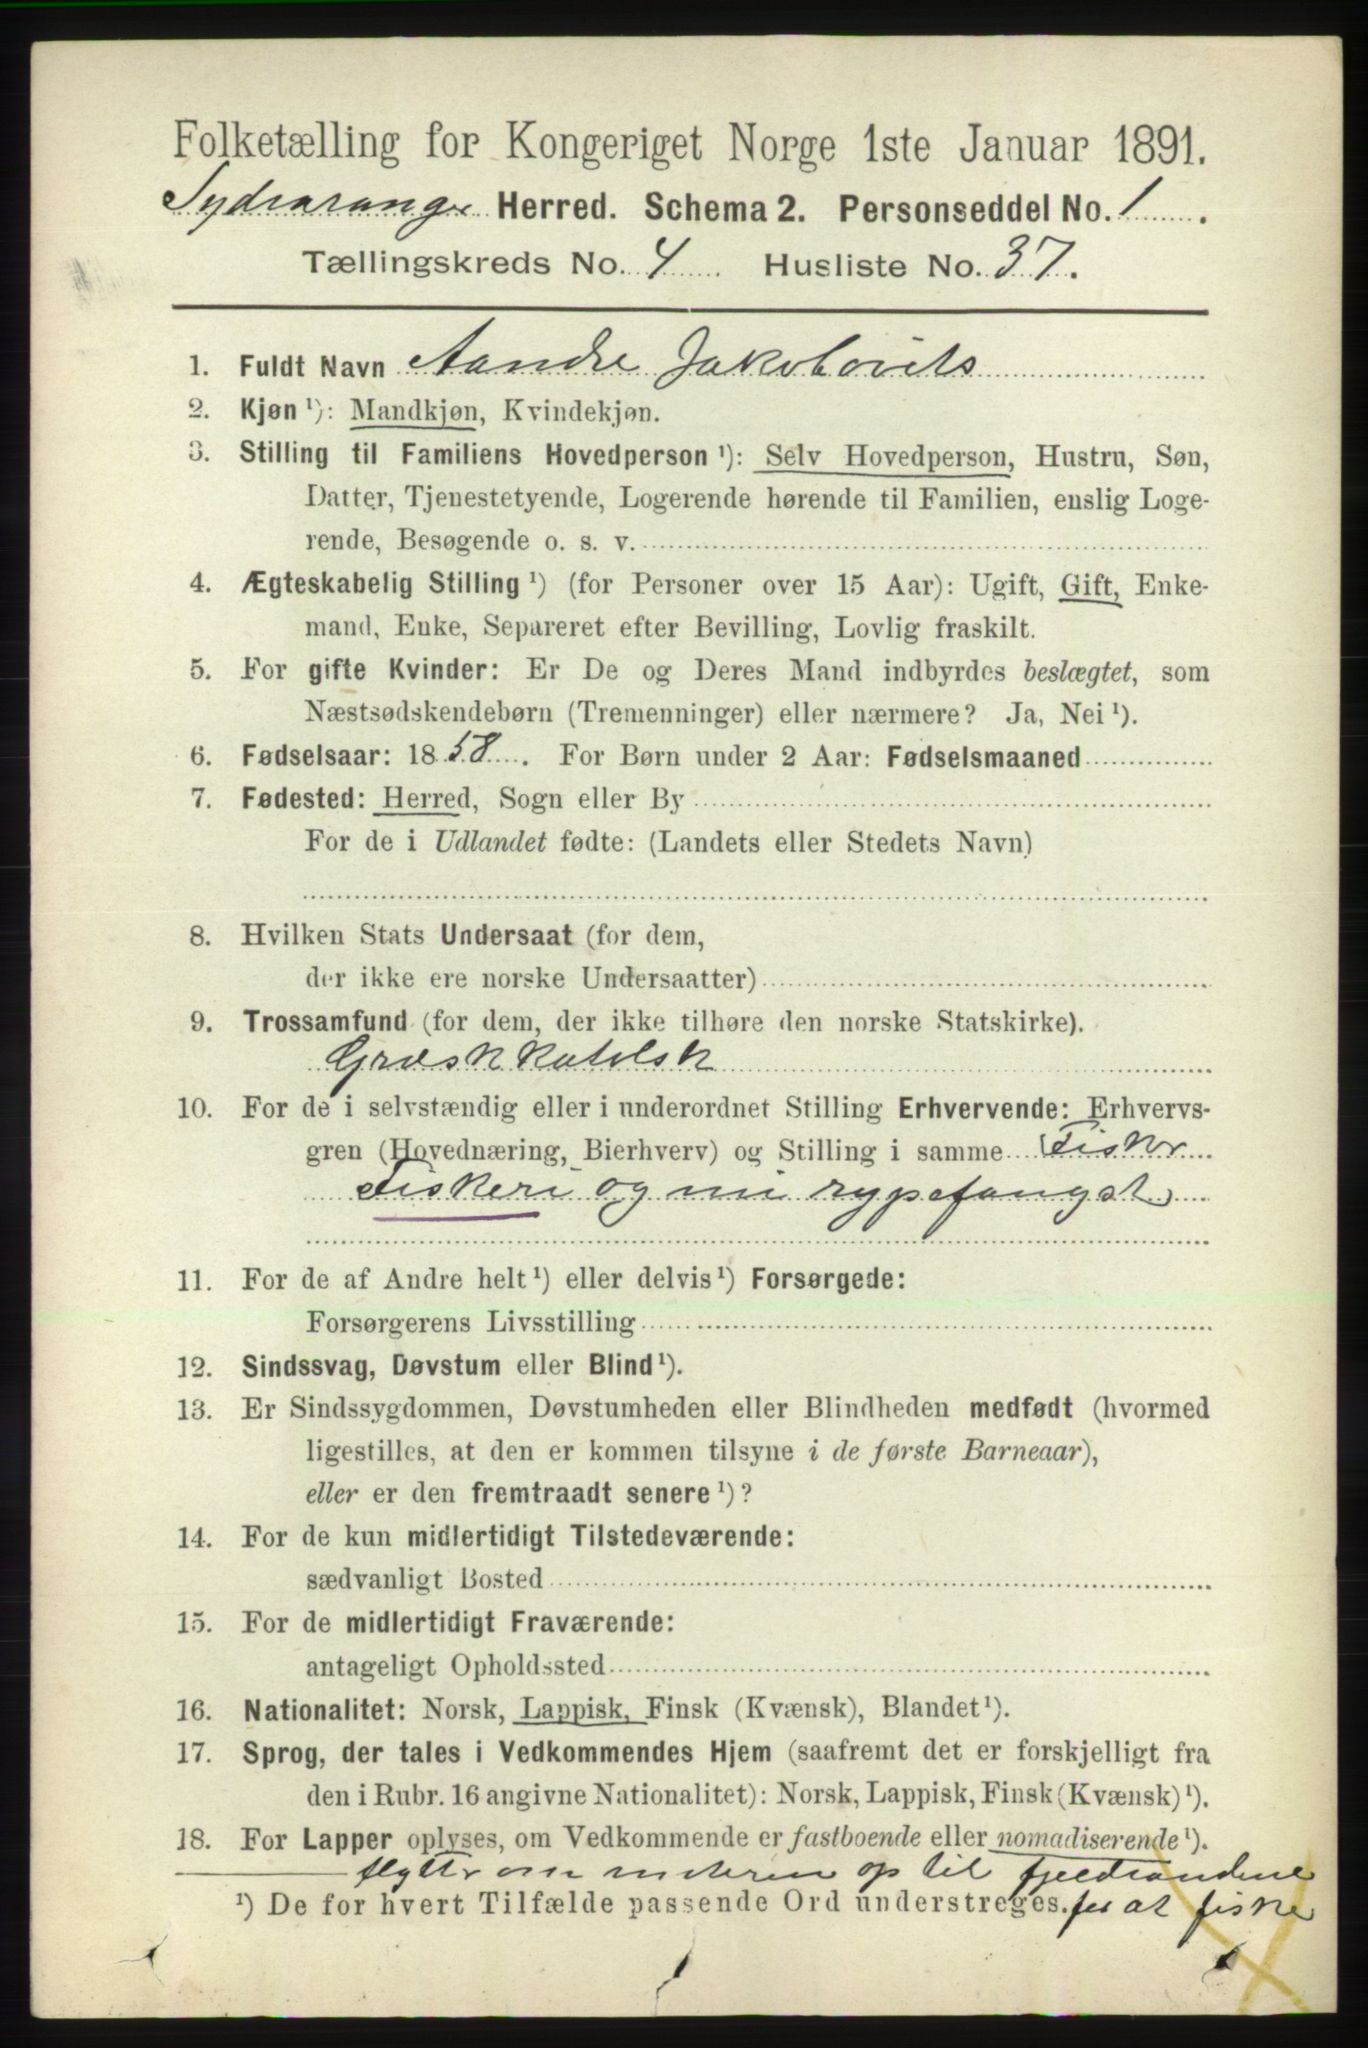 Folketælling for Kongeriget Norge 1ste Januar 1891.
Sydvaranger Herred. Schema 2. Personseddel No. 1.
Tællingskreds No. 4 Husliste No. 37.
1. Fuldt Navn Aandre Jakobovits
2. Kjøn ¹): Mandkjøn, Kvindekjøn.
3. Stilling til Familiens Hovedperson ¹): Selv Hovedperson, Hustru, Søn,
Datter, Tjenestetyende, Logerende hørende til Familien, enslig Loge-
rende, Besøgende o. s. v.
4. Ægteskabelig Stilling ¹) (for Personer over 15 Aar): Ugift, Gift, Enke-
mand, Enke, Separeret efter Bevilling, Lovlig fraskilt.
5. For gifte Kvinder: Er De og Deres Mand indbyrdes beslægtet, som
Næstsødskendebørn (Tremenninger) eller nærmere? Ja, Nei ¹).
6. Fødselsaar: 1858. For Børn under 2 Aar: Fødselsmaaned
7. Fødested: Herred, Sogn eller By
For de i Udlandet fødte: (Landets eller Stedets Navn)
8. Hvilken Stats Undersaat (for dem,
der ikke ere norske Undersaatter)
9. Trossamfund (for dem, der ikke tilhøre den norske Statskirke).
Græsk katolsk
10. For de i selvstændig eller i underordnet Stilling Erhvervende: Erhvervs-
gren (Hovednæring, Bierhverv) og Stilling i samme Fisker
Fiskeri og rypefangst
11. For de af Andre helt ¹) eller delvis ¹) Forsørgede:
Forsørgerens Livsstilling
12. Sindssvag, Døvstum eller Blind ¹).
13. Er Sindssygdommen, Døvstumheden eller Blindheden medfødt (hvormed
ligestilles, at den er kommen tilsyne i de første Barneaar),
eller er den fremtraadt senere ¹)?
14. For de kun midlertidigt Tilstedeværende:
sædvanligt Bosted
15. For de midlertidigt Fraværende:
antageligt Opholdssted
16. Nationalitet: Norsk, Lappisk, Finsk (Kvænsk), Blandet ¹).
17. Sprog, der tales i Vedkommendes Hjem (saafremt det er forskjelligt fra
den i Rubr. 16 angivne Nationalitet): Norsk, Lappisk, Finsk (Kvænsk) ¹).
18. For Lapper oplyses, om Vedkommende er fastboende eller nomadiserende ¹).
flytter om vinteren op til fjeldvandene
¹) De for hvert Tilfælde passende Ord understreges. for at fiske